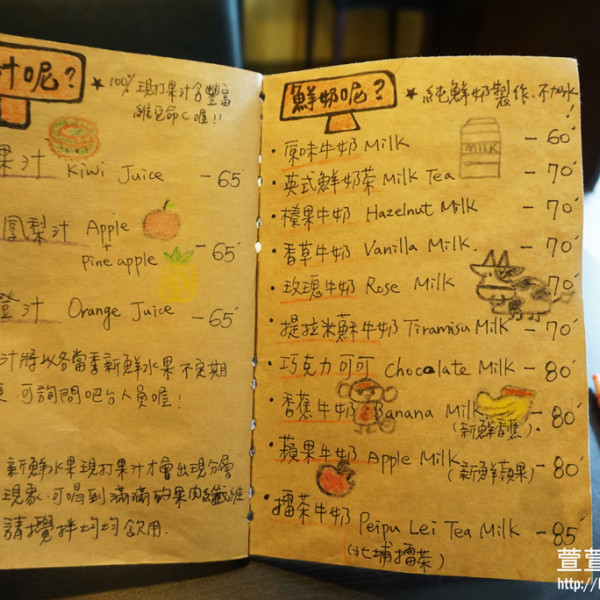 汁呢?
★ 100% 現打果汁含豐富
維他命C喔!!
果汁 Kiwi Juice - 65
鳳梨汁 Apple
+
pineapple - 65'
登汁 Orange Juice - 65'
汁將以各當季新鮮水果不定期
可詢問吧台人員喔!
新鮮水果現打果汁才會出現分層
現象.可喝到滿滿的果肉纖維
請攪拌均勻飲用.
鮮奶呢?
★ 純鮮奶製作.不加水!
• 原味牛奶 Milk - 60'
MILK
• 英式鮮奶茶 Milk Tea - 70'
• 榛果牛奶 Hazelnut Milk - 70'
• 香草牛奶 Vanilla Milk. - 70'
• 玫瑰牛奶 Rose Milk - 70'
• 提拉米蘇牛奶 Tiramisu Milk - 70'
• 巧克力可可 Chocolate Milk - 80'
• 香蕉牛奶 Banana Milk - 80'
(新鮮香蕉)
• 蘋果牛奶 Apple Milk - 80'
(新鮮蘋果)
• 擂茶牛奶 Peipu Lei Tea Milk - 85'
(北埔擂茶)
萱萱